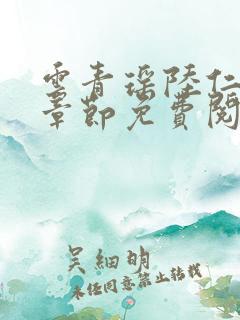 云青瑶陆仁
章节免费阅
吴细明
未经同意禁止转载